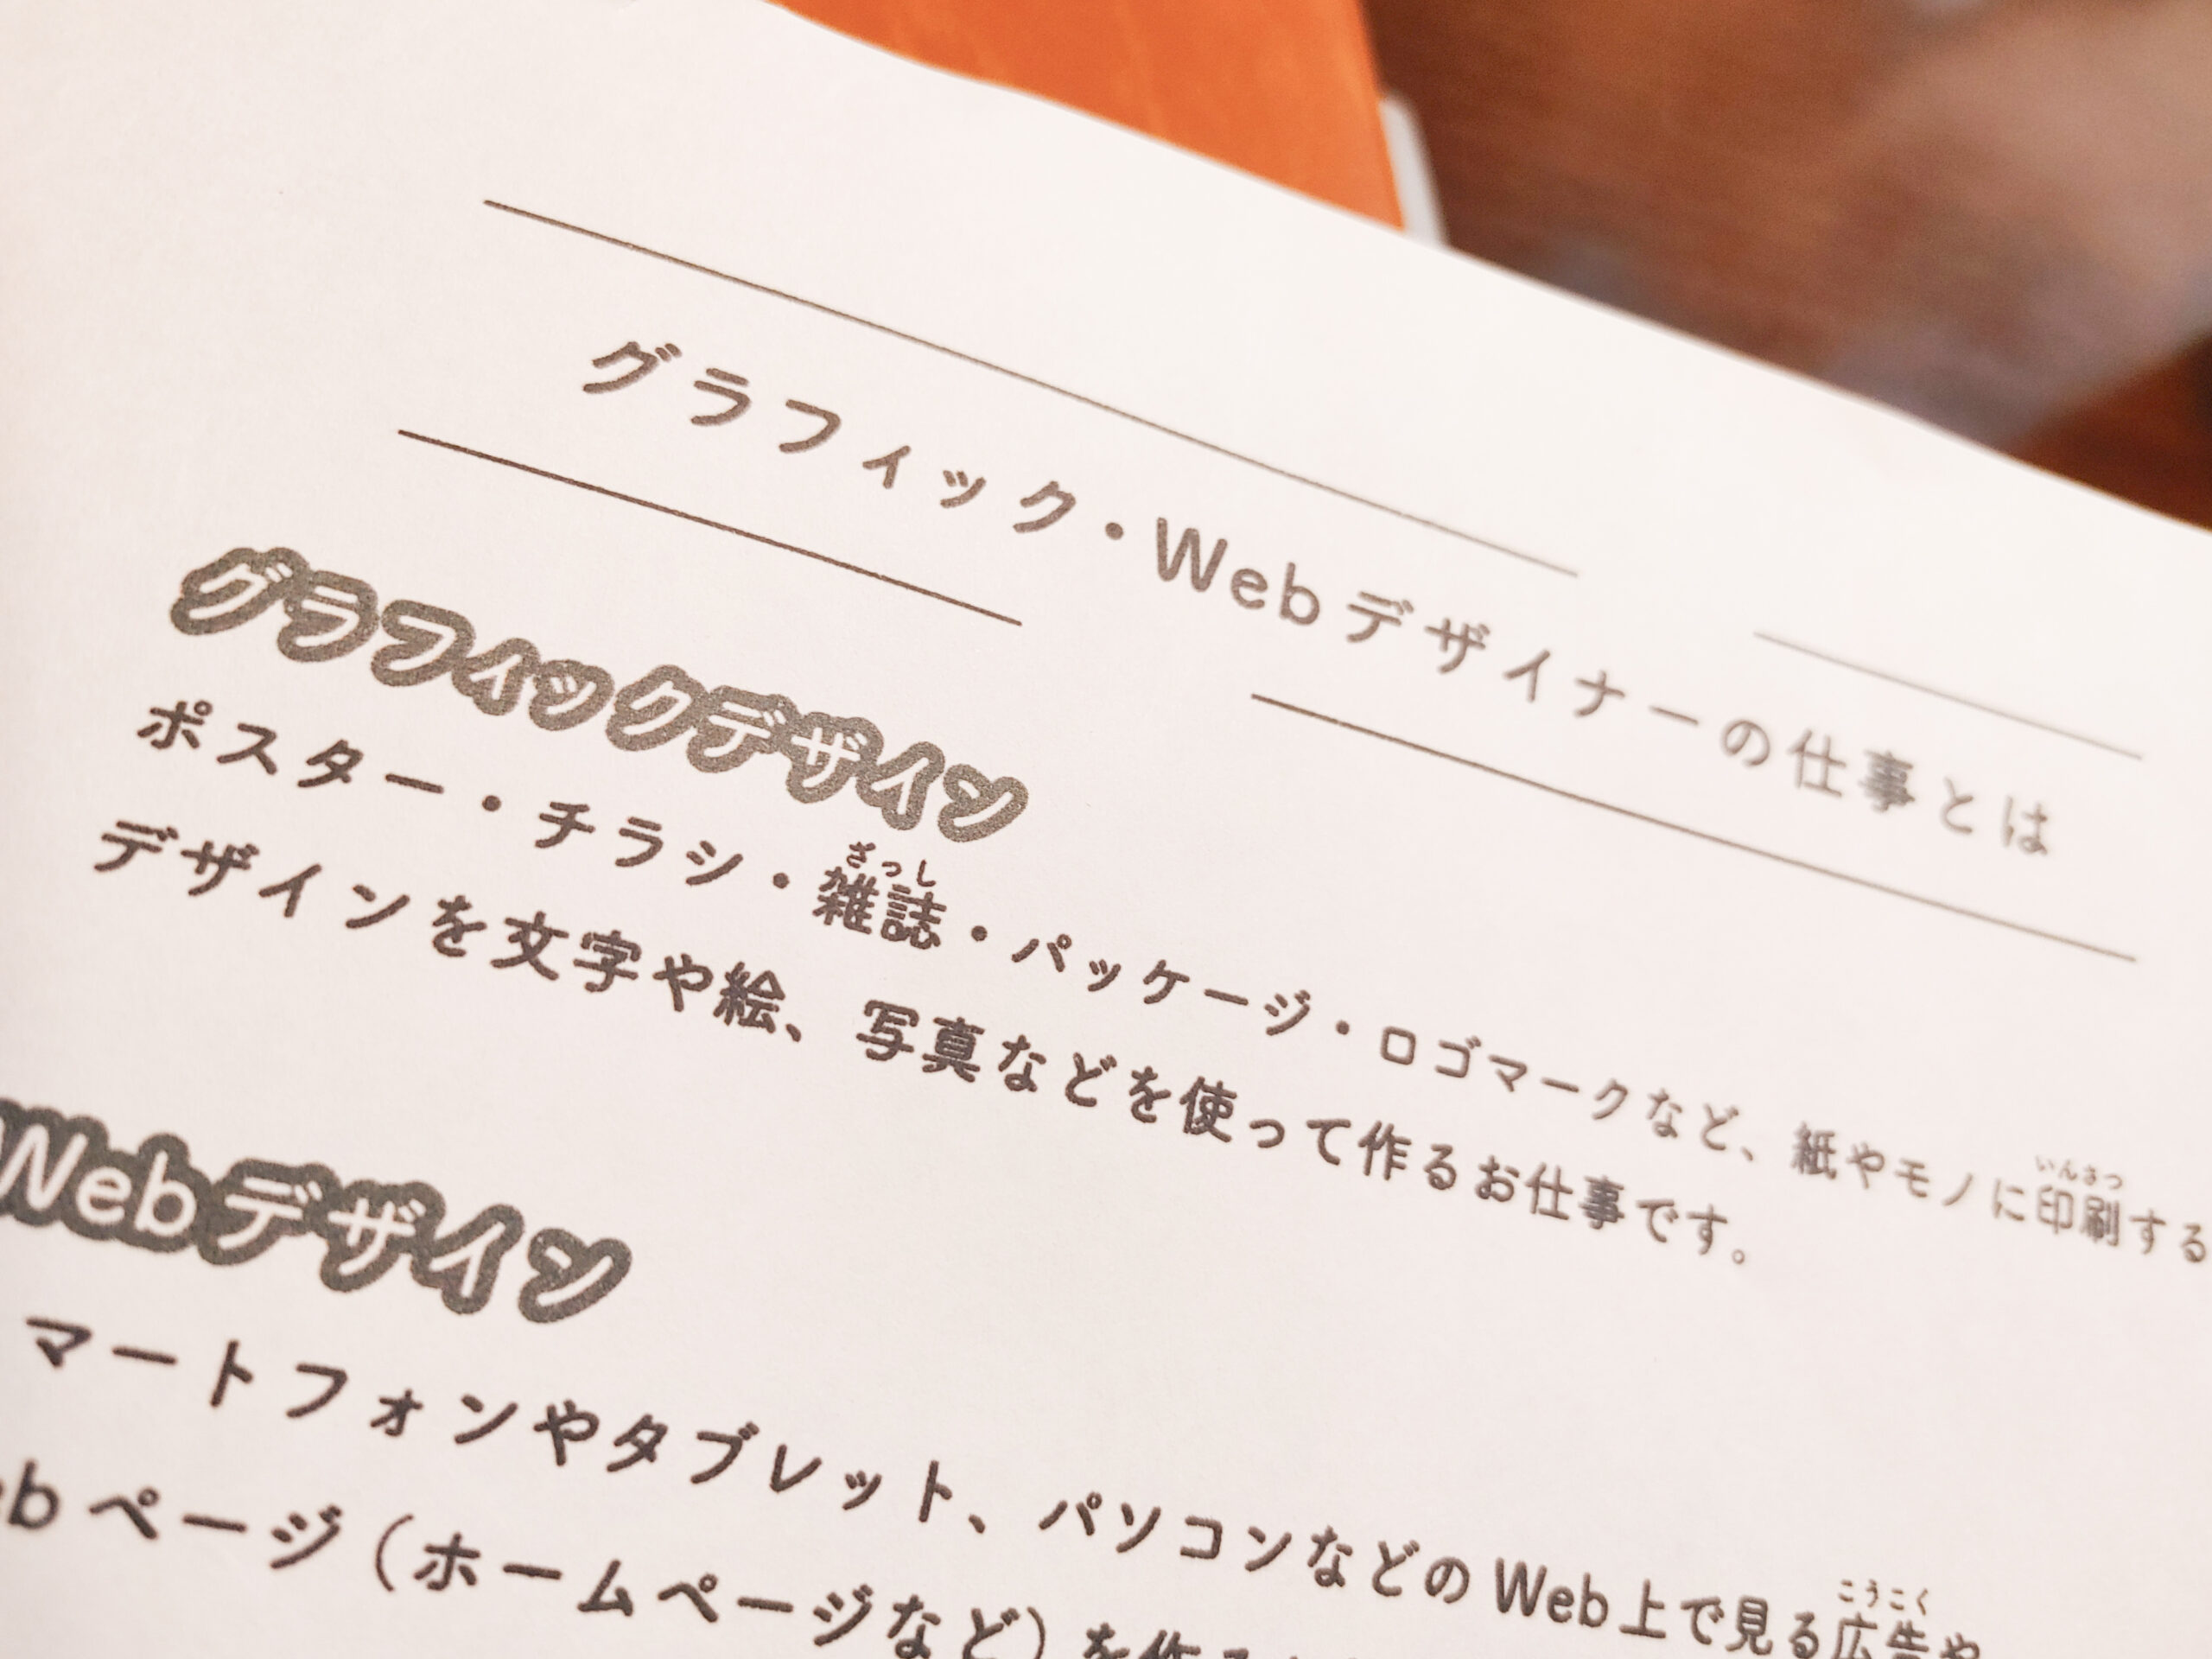 グラフィック・Webデザイナーの仕事とは
グラフィックデザイン
ざっし
ポスター・チラシ・雑誌・パッケージ・ロゴマークなど、紙やモノに印刷する
いんさつ
デザインを文字や絵、写真などを使って作るお仕事です。
Webデザイン
マートフォンやタブレット、パソコンなどのWeb上で見る広告や
こうこく
eb ページ（ホームページなど）を作